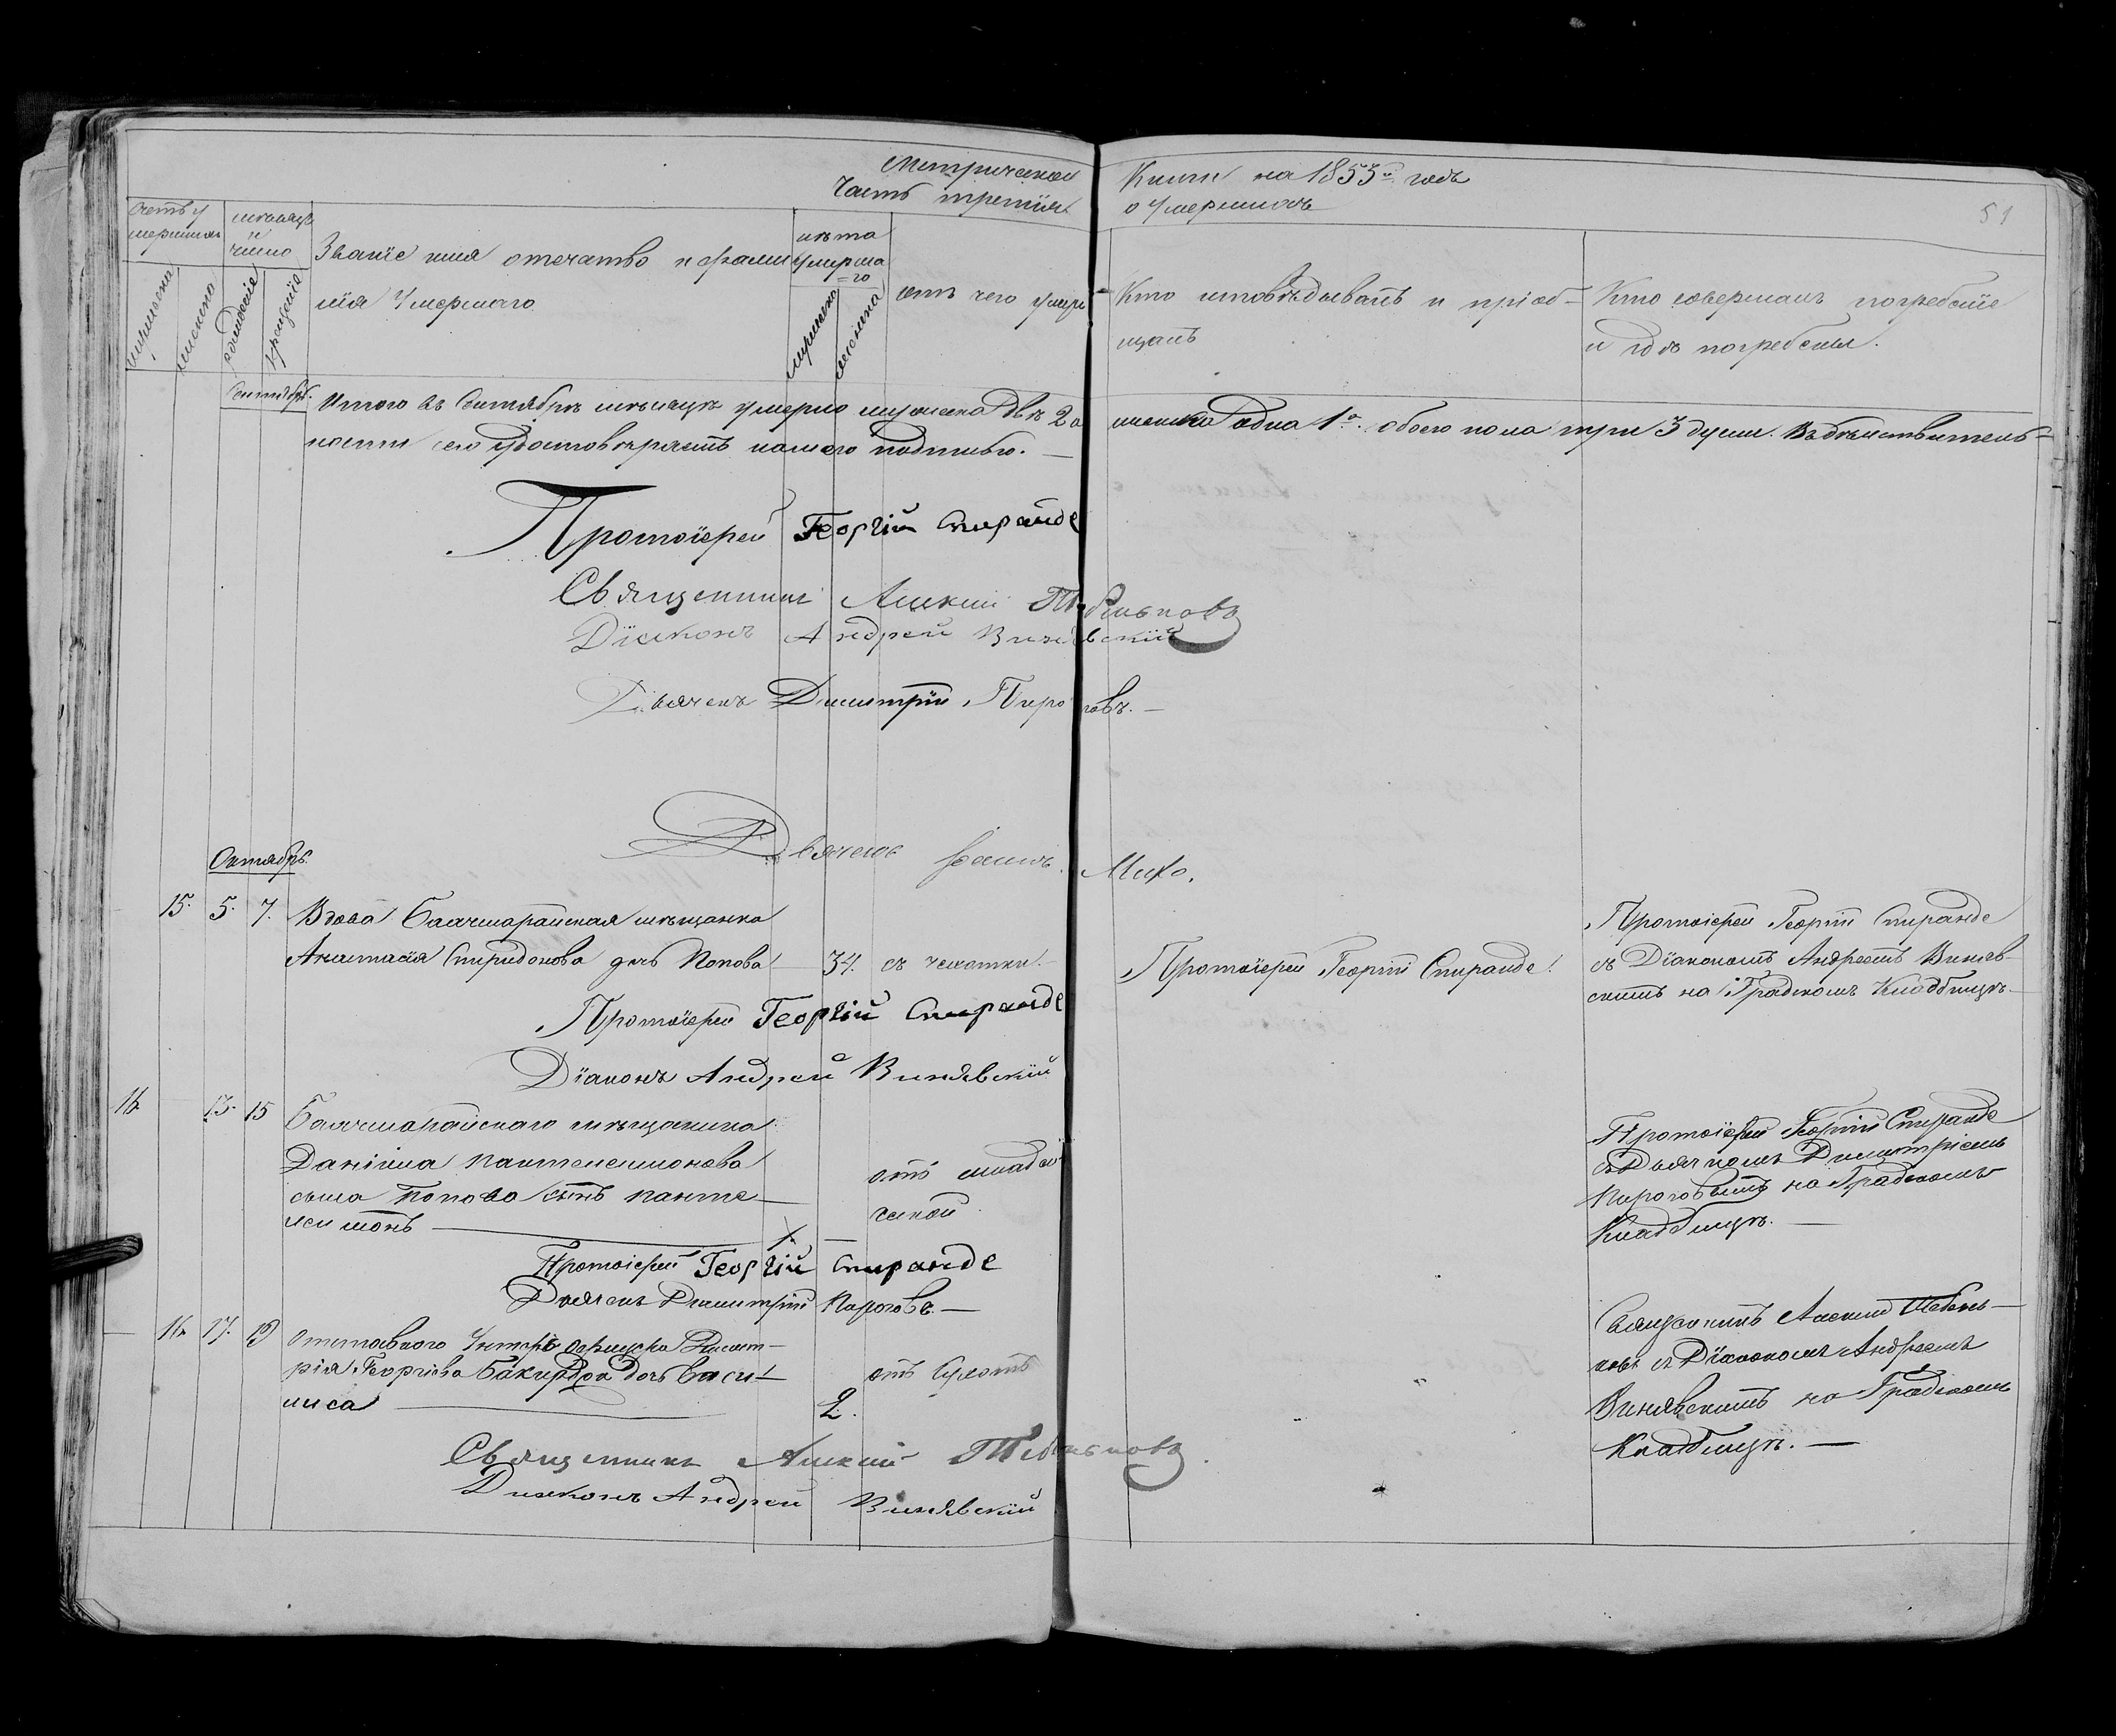 Метрической Книги на 1853й годъ
Часть третiя о Умершихъ
51
Счетъ у
мершихъ
мѣсяцъ
и
число
Званiе имя отечество и фами
лiя Умершаго
лѣта
умерша
=го
отъ чего умеръ
Кто исповѣдывалъ и прiоб-
щалъ
Кто совершалъ погребенiе
и гдѣ погребены.
мужеска
женска
мужеска
женска
Сентябрь.
Итого въ Сентябрѣ мѣсяцѣ умерло мужеска двѣ 2 женска одна 1а. обоего пола три 3 души. Въ дѣйствитель-
ности сего удостовѣряемъ нашего подписью. —
Протоiерей Георгiй Спиранде
Священникъ Алексiй
Дiаконъ Андрей Винявскiй
Дьячекъ Димитрiй Пироговъ. —
Дьячекъ
Октябрь.
15. 5. 7. Вдова Бахчисарайская мѣщанка
Анастасiя Спиридонова дочь Попова 34. съ чехотки. —
Протоiерей Георгiй Спиранде.
Протоiерей Георгiй Спиранде
съ Дiакономъ Андреемъ Виняв-
скимъ на Градскомъ Кладбищѣ.
Протоiерей Георгiй Спиранде
Дiаконъ Андрей Винявскiй
16 13. 15 Бахчисарайскаго мѣщанина
Данiила Пантелеимонова
сына Попова сынъ Панте-
леимонъ —
отъ младен
ческой
Протоiерей Георгiй Спиранде
съ Дьячкомъ Димитрiемъ
Пироговымъ на Градскомъ
Кладбищѣ. —
Протоiерей Георгiй Спиранде
Дьячекъ Димитрiй Пироговъ. —
16. 17. 19 Отставного Унтеръ офицера Димит-
рiя Георгiева дочь Васи-
лиса — 2.
отъ
Священникъ Алексiй
съ Дiакономъ Андреемъ
Винявскимъ на Градскомъ
Кладбищѣ. —
Священникъ Алексiй
Дiаконъ Андрей Винявскiй